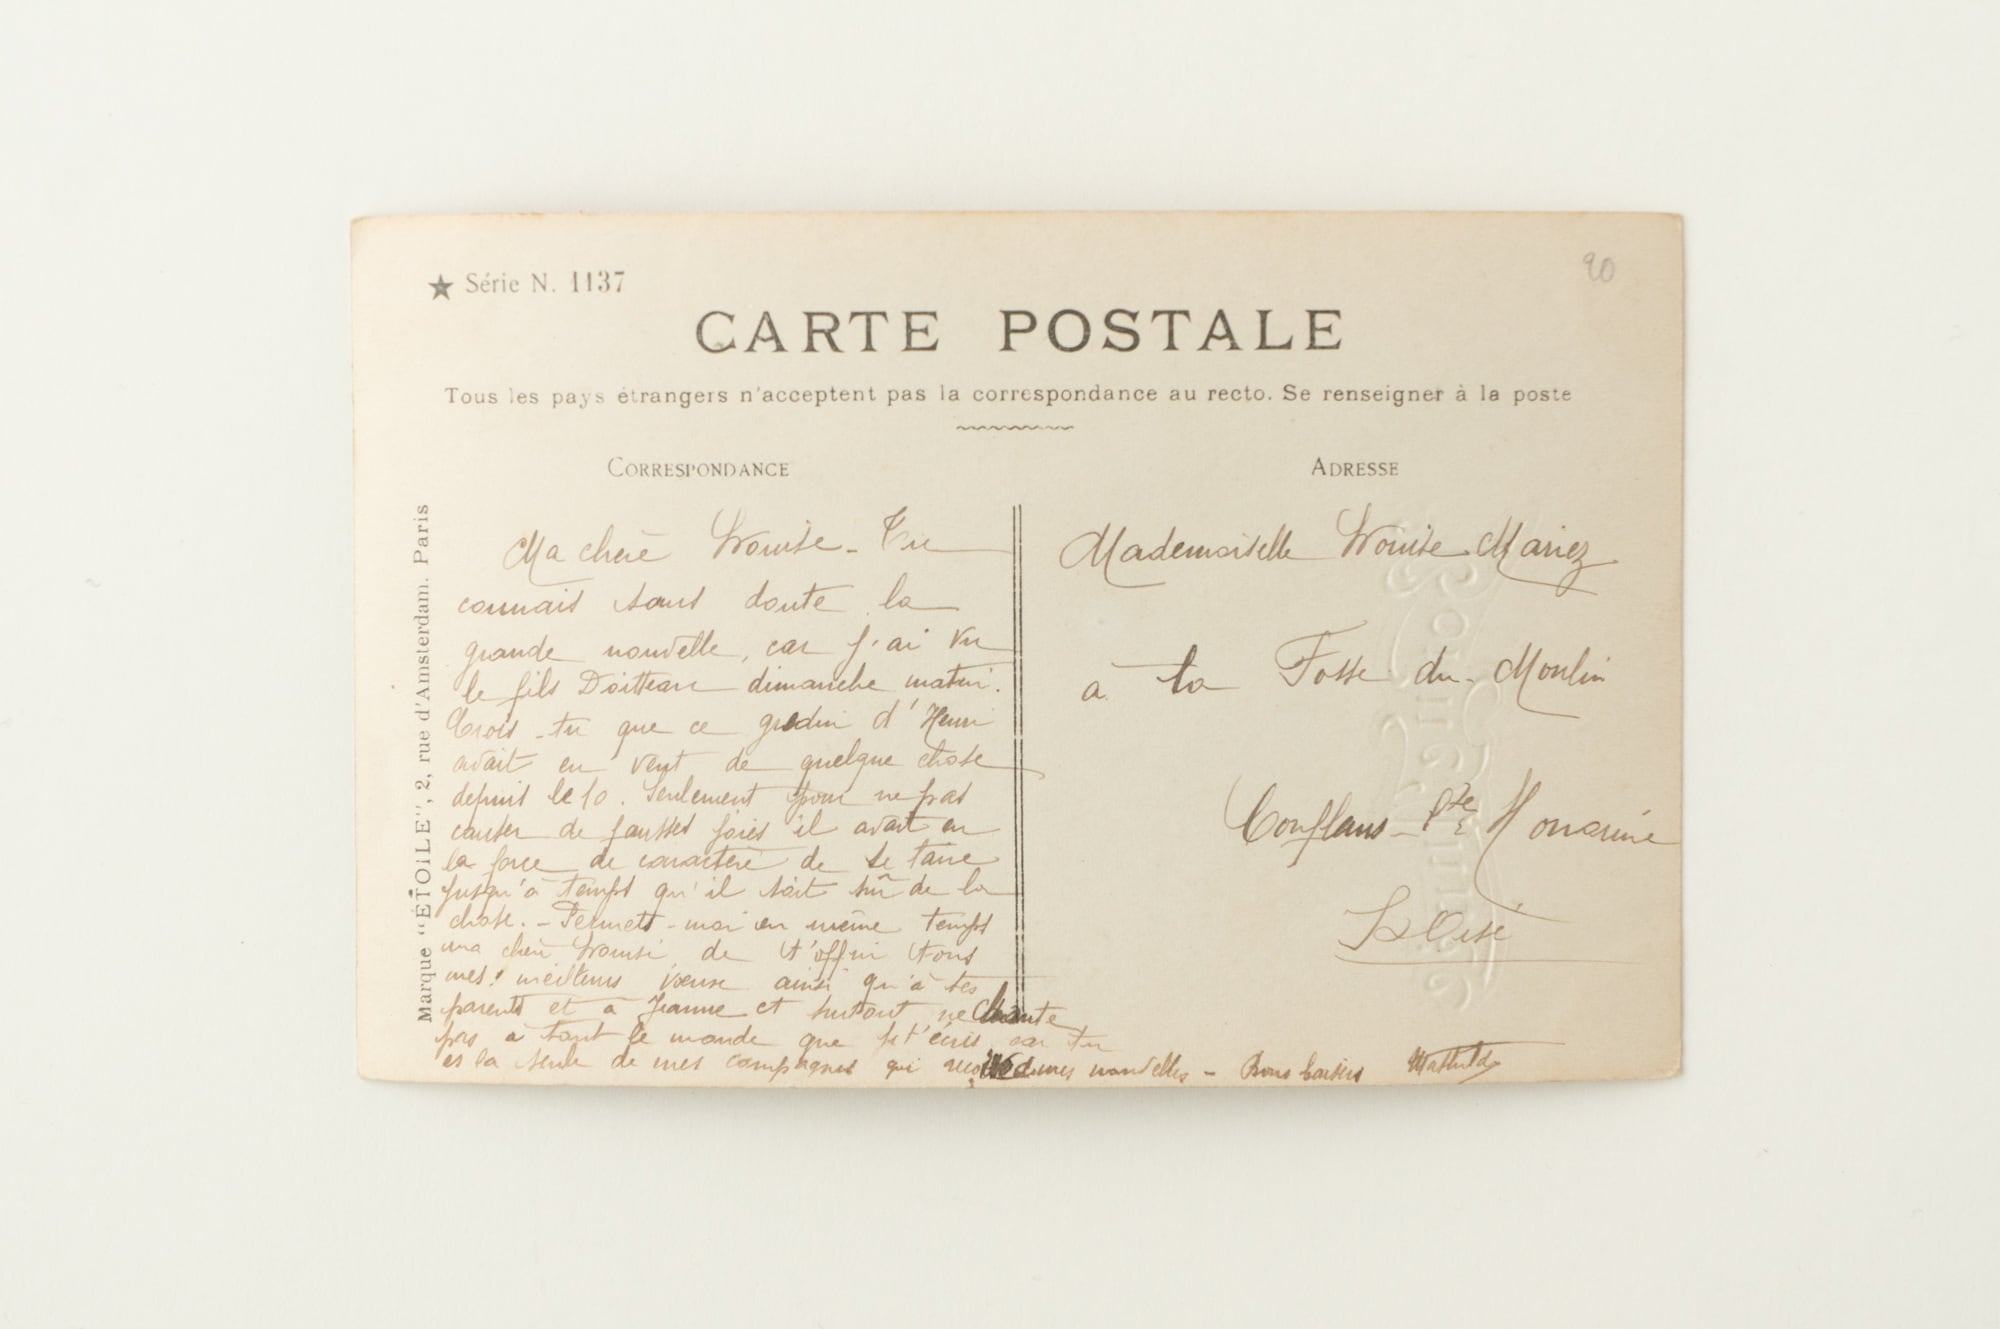 ★ Série N. 1137
90
CARTE POSTALE
Tous les pays étrangers n'acceptent pas la correspondance au recto. Se renseigner à la poste
CORRESPONDANCE
Ma chère Louise - Tu
connais sans doute la
grande nouvelle, car j'ai vu
le fils Doitteau dimanche matin.
Crois-tu que ce gredin d'Henri
avait eu vent de quelque chose
depuis le 10. Seulement pour ne pas
causer de fausses joies il avait eu
la force de caractère de se taire
jusqu'à temps qu'il soit sûr de la
chose. - Permets-moi en même temps
ma chère Louise, de t'offrir tous
mes meilleurs vœux ainsi qu'à tes
parents et à Jeanne et surtout ne chante
pas à tout le monde que je t'écris car tu
es la seule de mes compagnes qui reçoive de mes nouvelles - Bons baisers Mathilde
ADRESSE
Mademoiselle Louise Mariez
à la Fosse du Moulin
Conflans-Ste Honorine
S&Oise
Marque "ÉTOILE", 2, rue d'Amsterdam. Paris